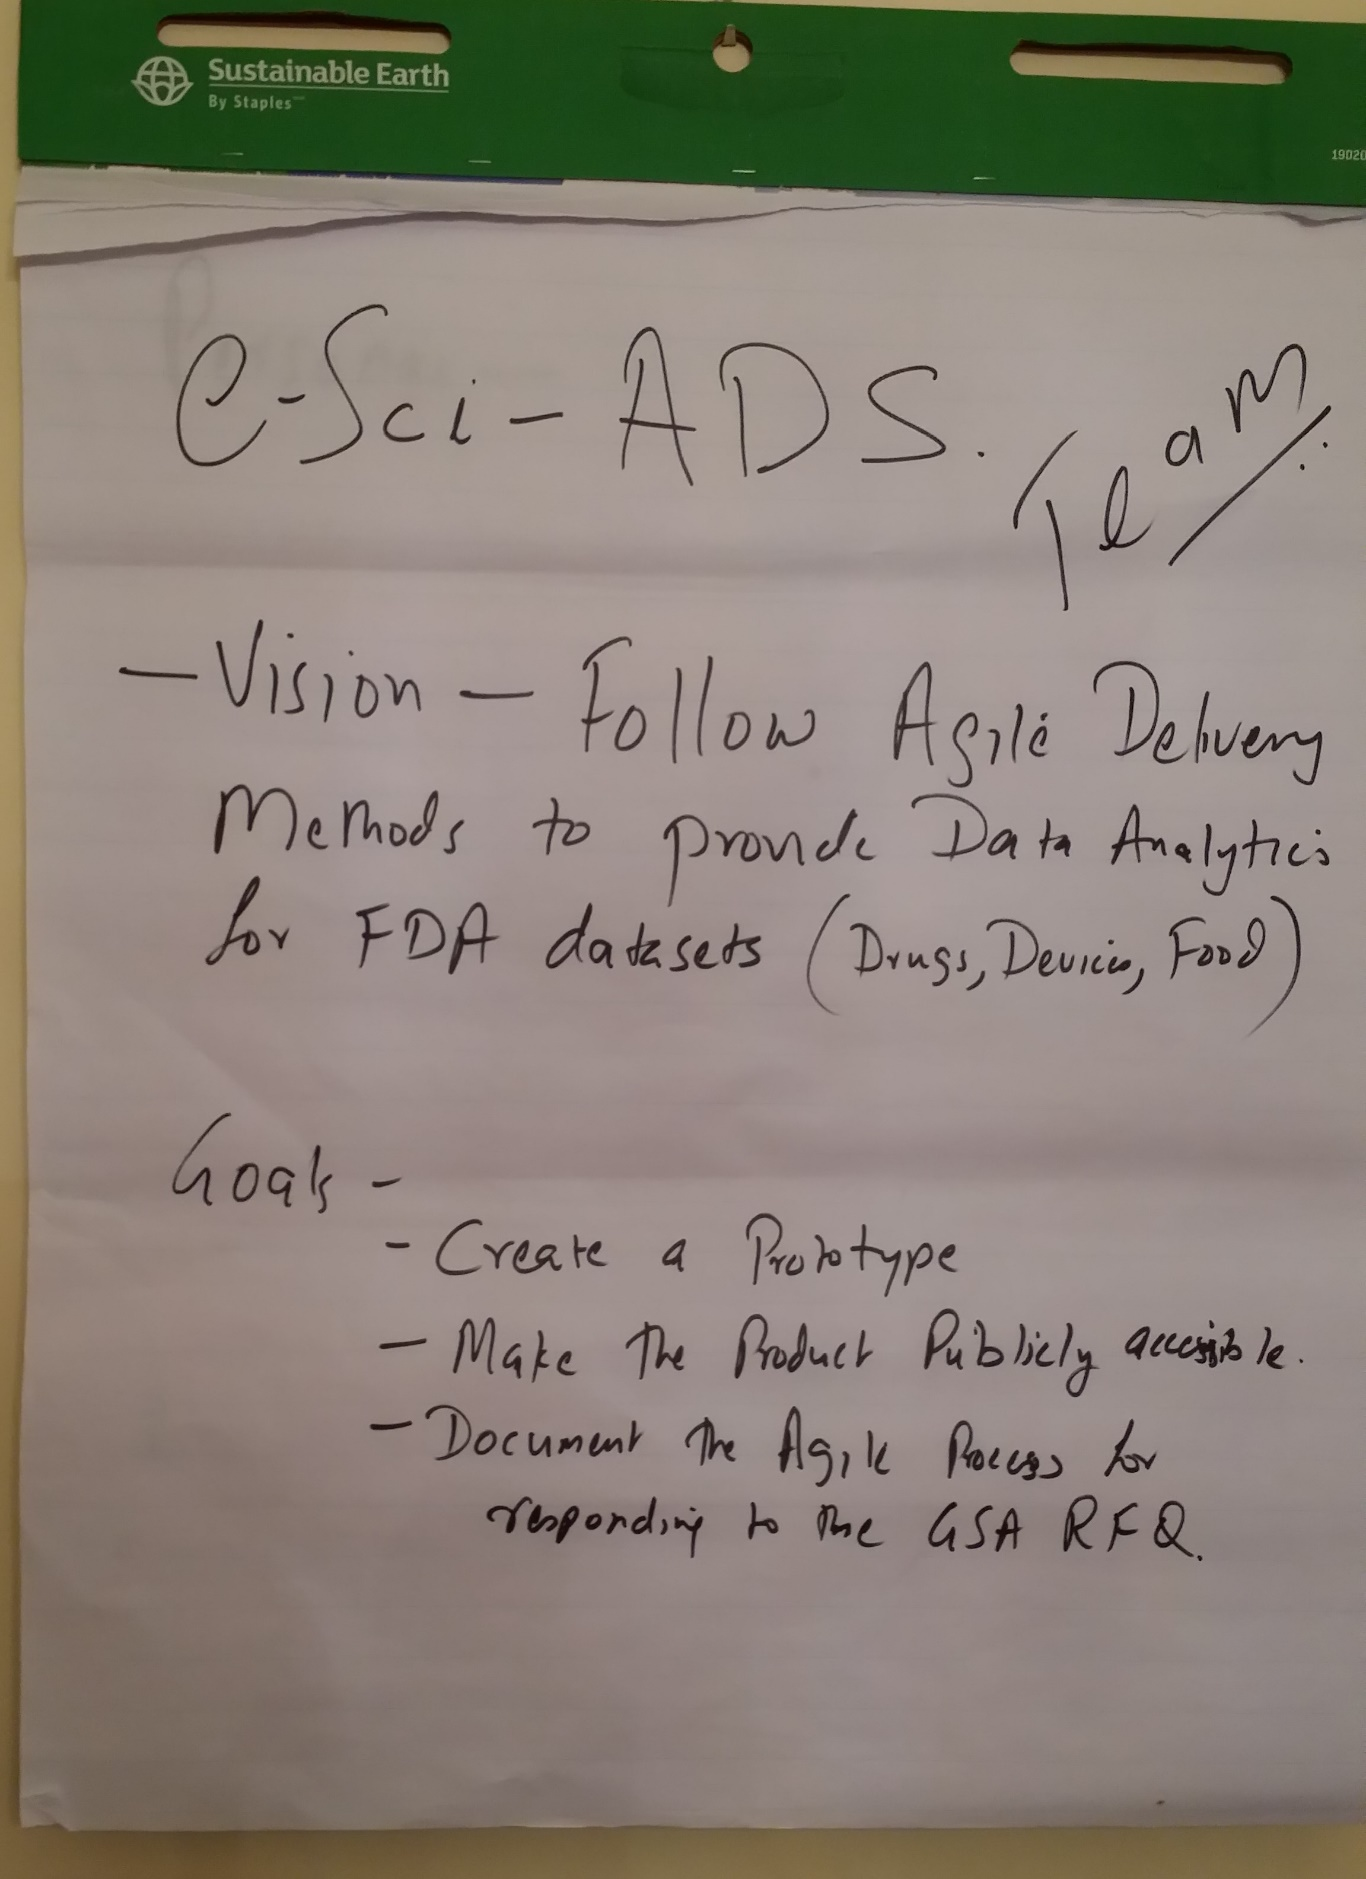 Sustainable Earth
By Staples
19020
e-Sci-ADS. Team
- Vision - Follow Agile Delivery
Methods to provide Data Analytics
for FDA datasets (Drugs, Devices, Food)
Goals -
- Create a Prototype
- Make the Product Publicly accessible.
- Document the Agile Process for
responding to the GSA RFQ.